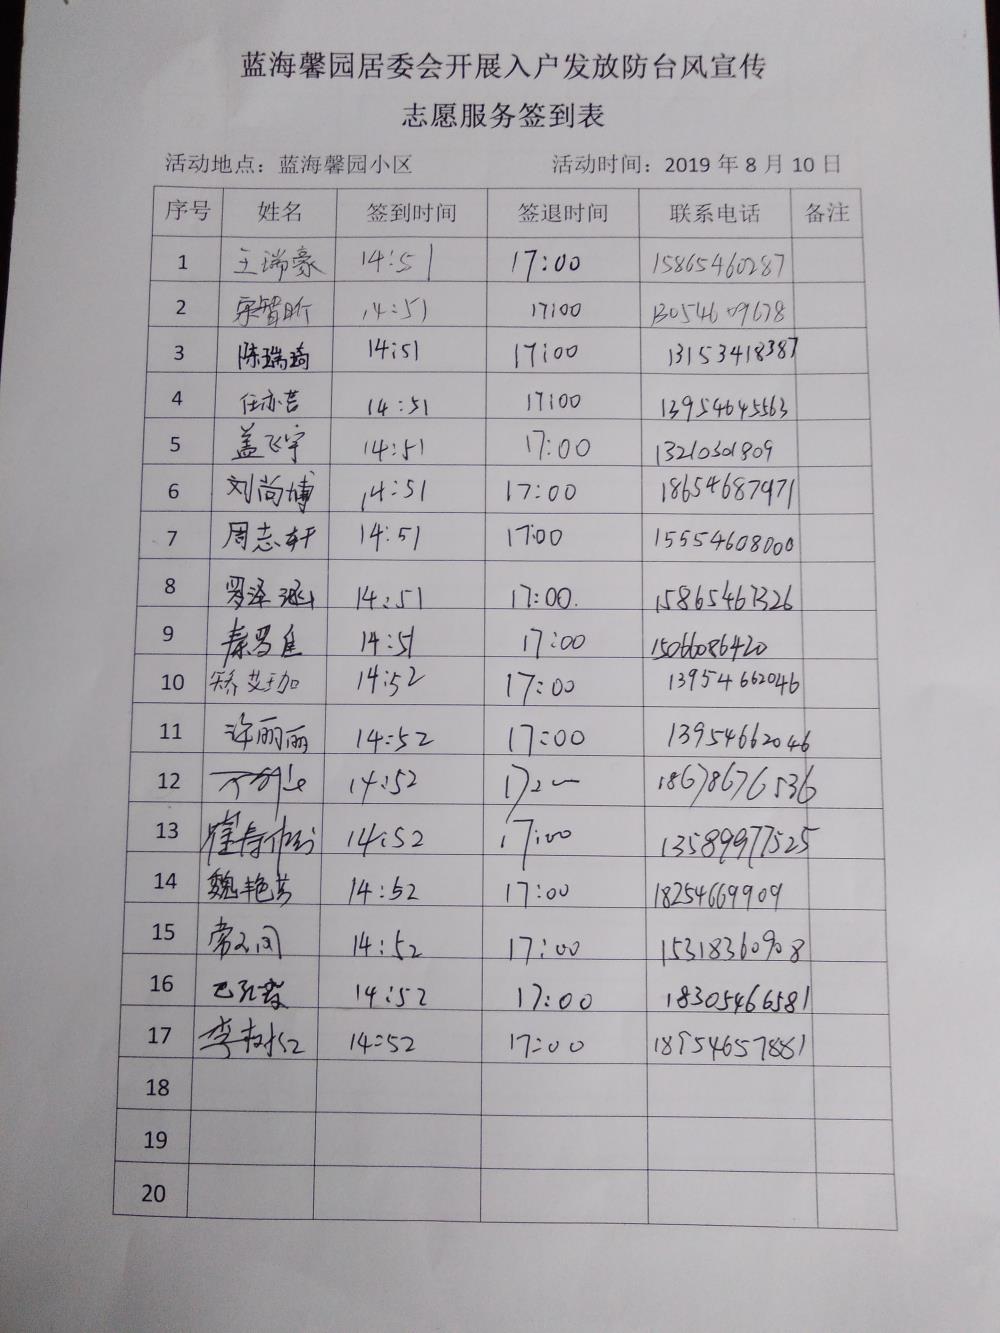 蓝海馨园居委会开展入户发放防台风宣传
志愿服务签到表
活动地点：蓝海馨园小区 活动时间：2019 年 8 月 10 日
序号 姓名 签到时间 签退时间 联系电话 备注
1 王瑞豪 14:51 17:00 15865460287
2 宋智昕 14:51 17:00 13054609678
3 陈瑞琦 14:51 17:00 13153418387
4 任亦菩 14:51 17:00 13954645563
5 盖飞宇 14:51 17:00 13210301809
6 刘尚博 14:51 17:00 18654687971
7 周志轩 14:51 17:00 15554608000
8 罗泽涵 14:51 17:00. 15865467326
9 14:51 17:00 15066086420
10 矫艾珈 14:52 17:00 13954662046
11 许丽丽 14:52 17:00 13954662046
12 14:52 18678676536
13 14:52 17:00 13589977525
14 魏艳芳 14:52 17:00 18254669909
15 14:52 17:00 15318360908
16 14:52 17:00 18305466581
17 14:52 17:00 18954657881
18
19
20